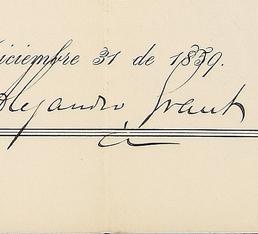 Diciembre 31 de 1889.
Alejandro Grant
á